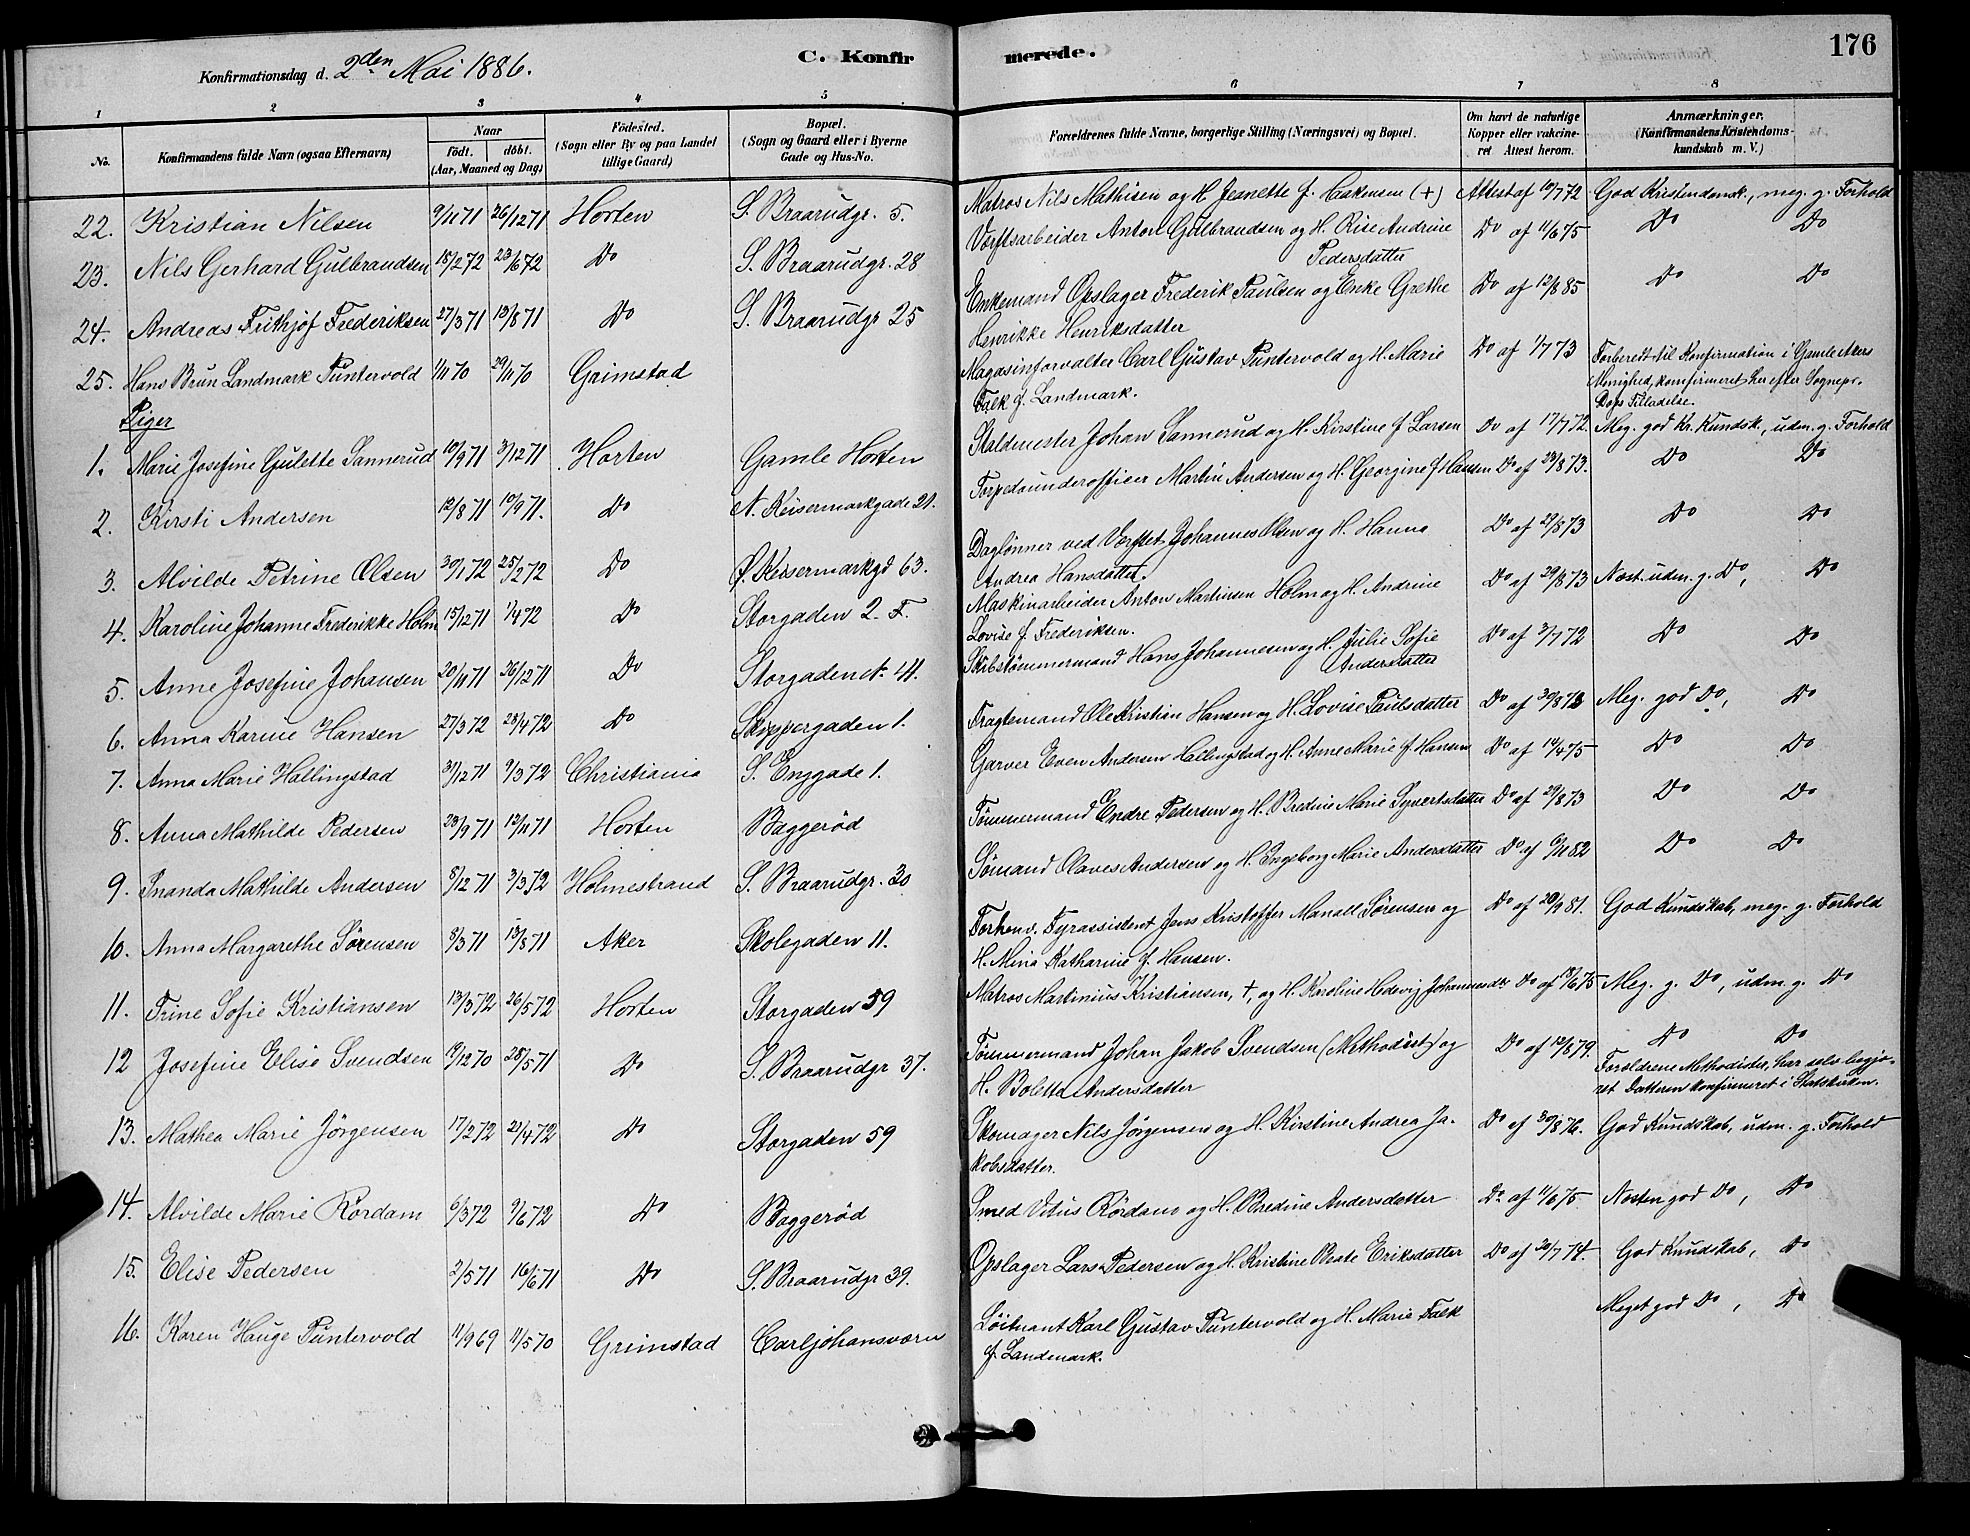 Konfirmationsdag d. 2den Mai 1886. C. Konfir
merede. 176
1 2 3 4 5
6 7 8
No. Konfirmandens fulde Navn (ogsaa Efternavn) Naar Födt. döbt. (Aar, Maaned og Dag) Födested. (Sogn eller By og paa Landet tillige Gaard) Bopæl. (Sogn og Gaard eller i Byerne Gade og Hus-No.
Forældrenes fulde Navne, borgerlige Stilling (Næringsvei) og Bopæl. Om havt de naturlige Kopper eller vakcineret Attest herom. Anmærkninger. (Konfirmandens Kristendomskundskab m. V.)
22. Kristian Nilsen 9/11 71 26/12 71 Horten S. Braarudgr. 5.
Matros Nils Mathisen og H. Jeanette f. Isaksen (+) Attest af 10/7 72 God Kristendomsk., meg. g. Forhold
23. Nils Gerhard Gulbrandsen 18/2 72 23/6 72 Do S. Braarudgr. 28
Værftsarbeider Anton Gulbrandsen og H. Rise Andrine Do af 11/6 75 Do Do
Pedersdatter
24. Andreas Frithjof Frederiksen 27/3 71 13/8 71 Do S. Braarudgr 25
Enkemand Opslager Frederik Paulsen og Enke Grethe Do af 12/8 85 Do Do
Henrikke Henriksdatter
25. Hans Brun Landmark Puntervold 1/11 70 29/11 70 Grimstad
Magasinforvalter Carl Gustav Puntervold og H. Marie Do af 1/7 73 Forberedt til Konfirmation i Gamle Akers
Falk f. Landmark. Menighed, konfirmeret her efter Sognepr.
Tilladelse.
Piger
1. Marie Josefine Gulette Sannerud 10/9 71 3/12 71 Horten Gamle Horten
Staldmester Johan Sannerud og H. Kirstine f Larsen Do af 17/7 72. Meg. god Kr. Kundsk., udm. g. Forhold
2. Kirsti Andersen 12/8 71 10/9 71. Do N. Keisermarkgade 21.
Torpedounderofficer Martin Andersen og H. Georgine f Hansen Do af 23/8 73. Do Do
3. Alvilde Petrine Olsen 30/1 72 25/2 72 Do Ø. Keisermarkgd 63.
Daglønner ved Værftet Johannes Olsen og H. Hanna Do af 27/8 73 Do Do
Andrea Hansdatter.
4. Karoline Johanne Frederikke Holm 15/12 71 1/4 72 Do Storgaden 2. F.
Maskinarbeider Anton Martinsen Holm og H. Andrine Do af 29/8 73 Næst. udm. g. Do, Do
Lovise f. Frederiksen.
5. Anne Josefine Johansen 20/11 71 26/12 71 Do Storgaden
Skibstømmermand Hans Johannesen og H. Julie Sofie Do af 3/7 72 Do Do
Andersdatter
6. Anna Karine Hansen 27/3 72 28/4 72 Do Skippergaden 1.
Fragtemand Ole Kristian Hansen og H. Lovise Paulsdatter Do af 30/8 73 Meg. god Do, Do
7. Anna Marie Hallingstad 31/12 71 9/3 72 Christiania S. Enggade 1.
Garver Even Andersen Hallingstad og H. Anne Marie f. Hansen Do af 14/4 75 Do Do
8. Anna Mathilde Pedersen 23/9 71 12/11 71 Horten Baggerød
Tømmermand Endre Pedersen og H. Bredine Marie Syvertsdatter Do af 29/8 73 Do Do
9. Inanda Mathilde Andersen 8/12 71 3/3 72 Holmestrand S. Braarudgr. 30
Sømand Olaves Andersen og H. Engeborg Marie Andersdatter Do af 6/11 82 Do Do
10. Anna Margarethe Sørensen 8/3 71 13/8 71 Aker Skolegaden 11.
Forhenv. Fyrassistent Jens Kristoffer Sørensen og Do af 20/9 81. God Kundskab, meg. g. Forhold
H. Mina Katharine f. Hansen.
11. Trine Sofie Kristiansen 13/3 72 26/5 72 Horten Storgaden 59
Matros Martinius Kristiansen, +, og H. Karoline Hedevig Do af Meg. g. Do, udm. g. Do
12 Josefine Elise Svendsen 19/12 70 28/5 71 Do S. Braarudgr 37.
Tømmermand Johan Jakob Svendsen (Methodist) og Do af 12/8 79. Do Do
H. Bolette Andersdatter Forældrene Methodister, har selv begjæret
Datteren konfirmeret i Statskirken.
13. Mathea Marie Jørgensen 17/2 72 21/4 72 Do Storgaden 59
Skomager Nils Jørgensen og H. Kirstine Andrea Ja- Do af 30/8 76. God Kundskab, udm. g. Forhold
kobsdatter.
14. Alvilde Marie Rørdam 6/3 72 9/6 72 Do Baggerød
Smed Vitus Rørdam og H. Bredine Andersdatter Do af 11/6 75 Næsten god Do, Do
15. Elise Pedersen 2/5 71 16/6 71 Do S. Braarudgr 39.
Opslager Lars Pedersen og H. Kristine Beate Eriksdatter Do af 30/7 74. God Kundskab, Do
16. Karen Hauge Puntervold 11/9 69 11/5 70 Grimstad Carljohansværn
Løitnant Karl Gustav Puntervold og H. Marie Falk Meget god Do, Do
f. Landmark.